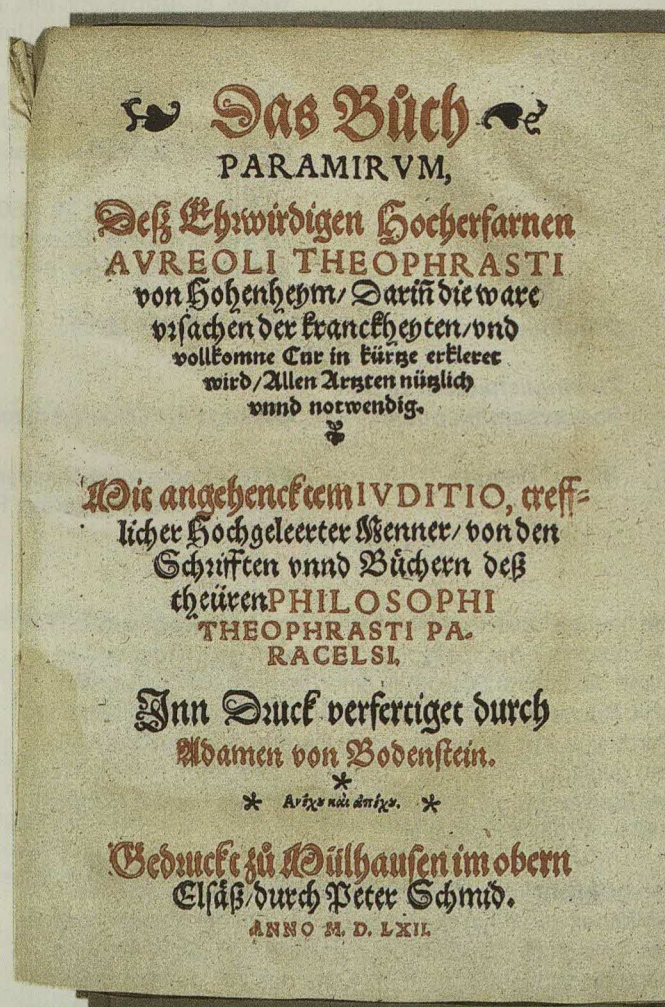 Das Bůch
PARAMIRVM,
Deſʒ Ehꝛwirdigen Hocherfarnen
AVREOLI THEOPHRASTI
von Hohenheym/ Dariñ die ware
vꝛſachen der kranckheyten/vnd
vollkomne Cur in kürtze erkleret
wird/Allen Artzten nützlich
vnnd notwendig.
Mit angehencktem IVDITIO, treff⸗
licher Hochgeleerter Menner/ von den
Schꝛifften vnnd Büchern deß
theüren PHILOSOPHI
THEOPHRASTI PA-
RACELSI.
Jnn Dꝛuck verfertiget durch
Adamen von Bodenſtein.
*
* Ανέχου καὶ ἀπέχου. *
Gedꝛuckt zů Mülhauſen im obern
Elſäß/durch Peter Schmid.
ANNO M. D. LXII.